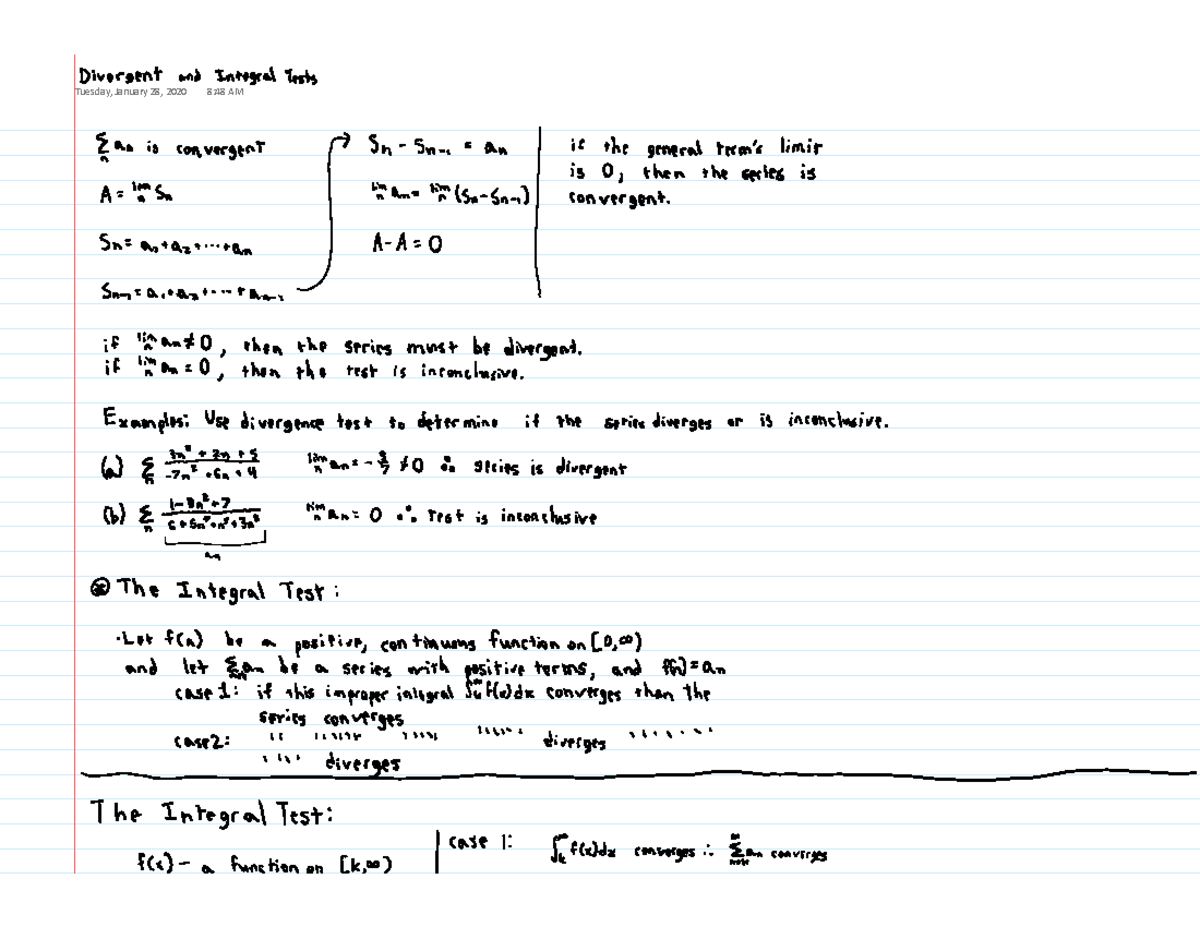 Divergent and Integral Tests
Tuesday, January 28, 2020 8:48 AM
∑_n an is convergent
A = lim_n Sn
Sn = a1 + a2 + ... + an
Sn-1 = a1 + a2 + ... + an-1
Sn - Sn-1 = an
lim_n an = lim_n (Sn - Sn-1)
A - A = 0
if the general term's limit
is 0, then the series is
convergent.
if lim_n an ≠ 0, then the series must be divergent.
if lim_n an = 0, then the test is inconclusive.
Examples: Use divergence test to determine if the series diverges or is inconclusive.
(a) ∑_n (3n² + 2n + 5)/(-7n² + 6n + 4) lim_n an = -3/7 ≠ 0 ∴ series is divergent
(b) ∑_n lim_n an = 0 ∴ test is inconclusive
an
⊛ The Integral Test:
· Let f(n) be a positive, continuous function on [0,∞)
and let ∑ an be a series with positive terms, and f(n) = an
case 1: if this improper integral ∫ f(x)dx converges than the
series converges
case 2: '' '' '' '' diverges ''
'' diverges
The Integral Test:
f(x) - a function on [k,∞)
case 1: ∫_k^∞ f(x)dx converges ∴ ∑_{n=k}^∞ an converges